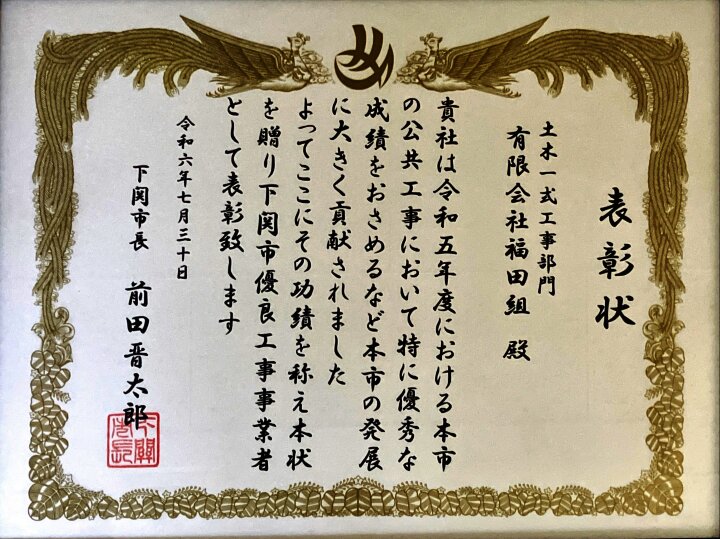 表彰状
土木一式工事部門
有限会社福田組 殿
貴社は令和五年度における本市
の公共工事において特に優秀な
成績をおさめるなど本市の発展
に大きく貢献されました
よってここにその功績を称え本状
を贈り下関市優良工事事業者
として表彰致します
令和六年七月三十日
下関市長 前田晋太郎
下關
市長